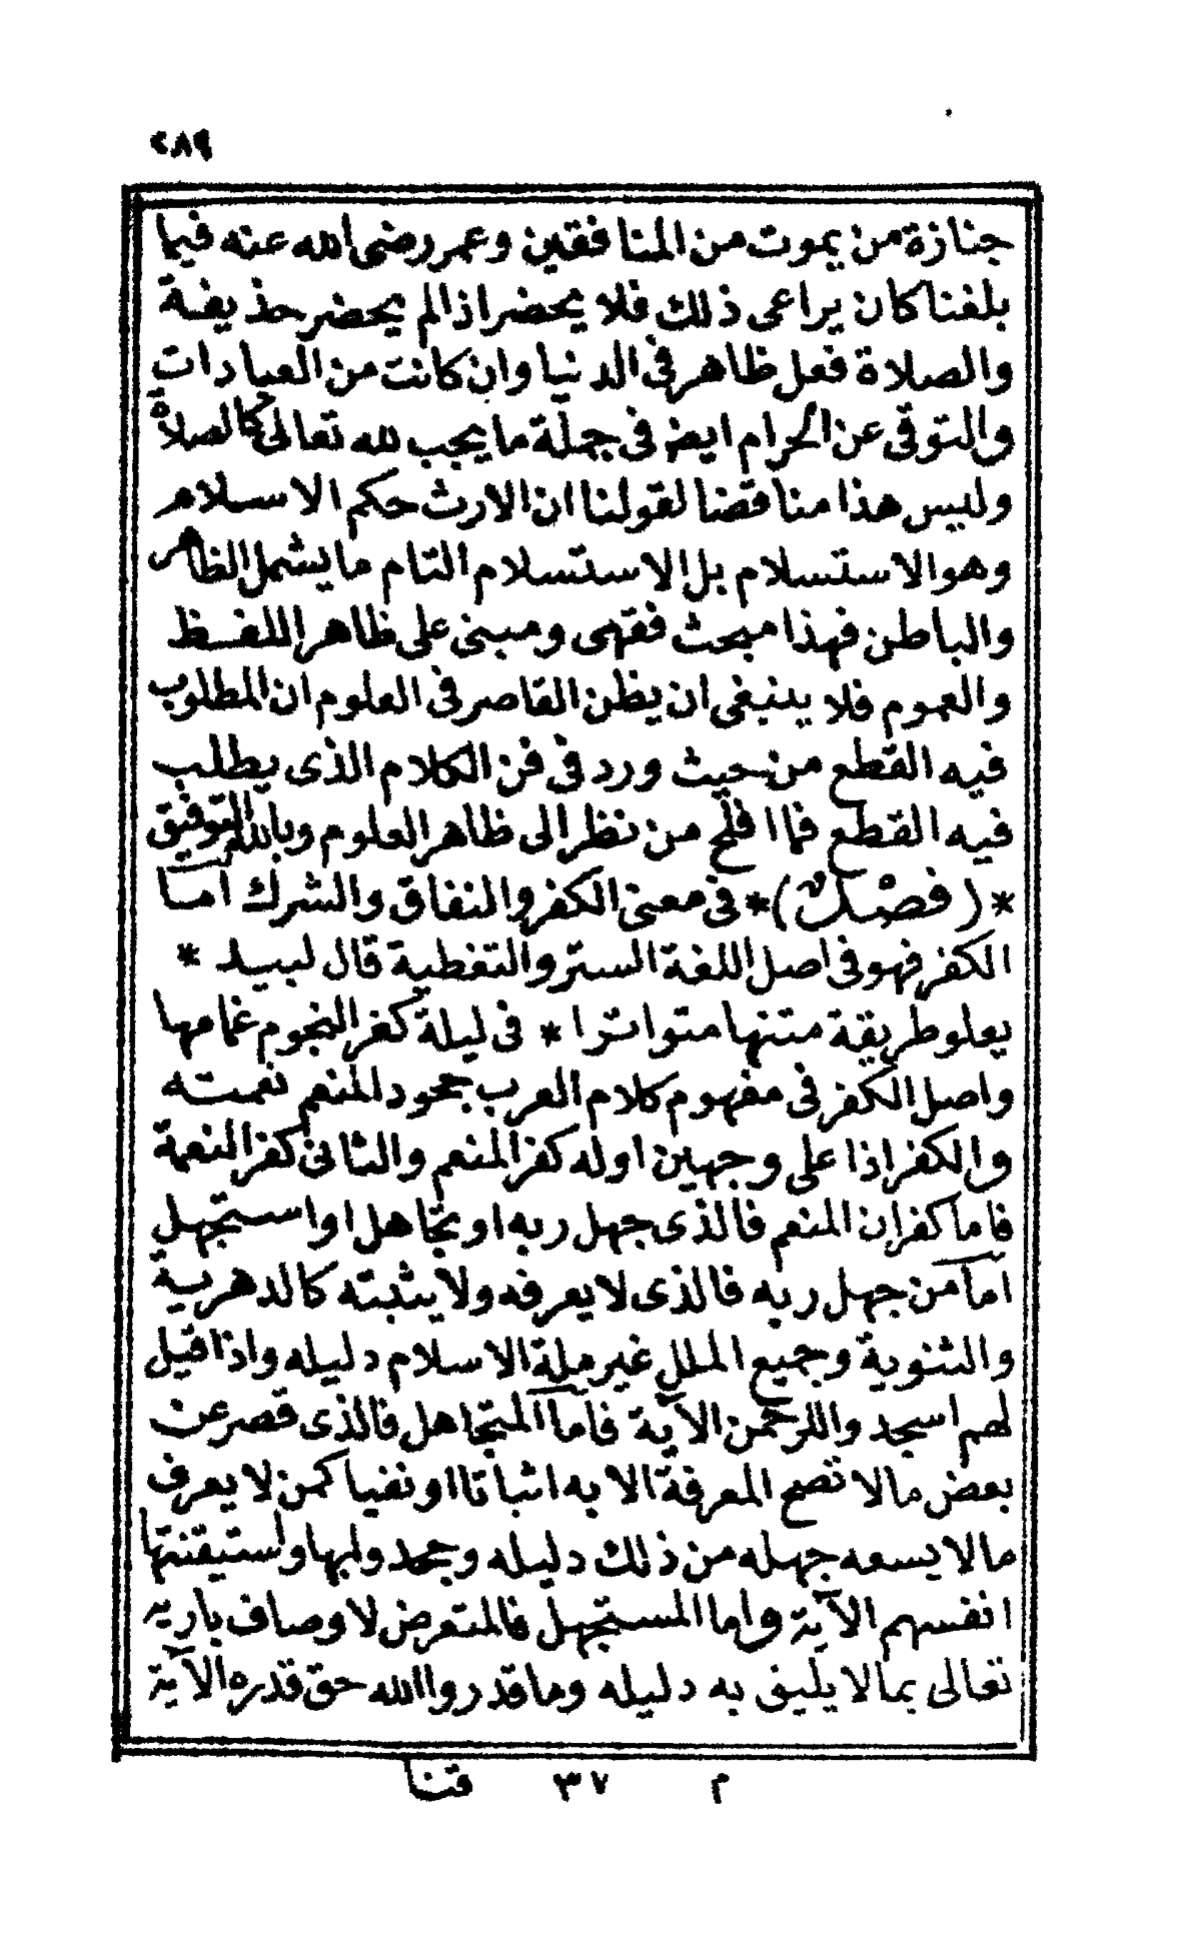 ٢٨٩
جنازة من يموت من المنافقين وعمر رضى الله عنه فيما
بلغنا كان يراعى ذلك فلا يحضر اذا لم يحضر حذيفة
والصلاة فعل ظاهر فى الدنيا وان كانت من العبادات
والتوقى عن الحرام ايضا فى جملة ما يجب لله تعالى كالصلاة
وليس هذا مناقضا لقولنا ان الارث حكم الاسلام
وهو الاستسلام بل الاستسلام التام ما يشمل الظاهر
والباطن فهذا مبحث فقهى ومبنى على ظاهر اللفظ
والعموم فلا ينبغى ان يظن القاصر فى العلوم ان المطلوب
فيه القطع من حيث ورد فى فن الكلام الذى يطلب
فيه القطع فما افلح من نظر الى ظاهر العلوم وبالله التوفيق
* (فصل) * فى معنى الكفر والنفاق والشرك اما
الكفر فهو فى اصل اللغة الستر والتغطية قال لبيد *
يعلو طريقة متنها متواترا * فى ليلة كفر النجوم غمامها
واصل الكفر فى مفهوم كلام العرب جحود المنعم نعمته
والكفر اذا على وجهين اوله كفر المنعم والثانى كفر النعمة
فاما كفران المنعم فالذى جهل ربه او تجاهل او استجهل
اما من جهل ربه فالذى لا يعرفه ولا يثبته كالدهرية
والثنوية وجميع الملل غير ملة الاسلام دليله واذا قيل
لهم اسجدوا للرحمن الآية فاما المتجاهل فالذى قصر عن
بعض ما لا تصح المعرفة الا به اثباتا او نفيا كمن لا يعرف
ما لا يسعه جهله من ذلك دليله وجحدوا بها واستيقنتها
انفسهم الآية واما المستجهل فالمتعرض لاوصاف باريه
تعالى بما لا يليق به دليله وما قدروا الله حق قدره الآية
م ٣٧ قتنا